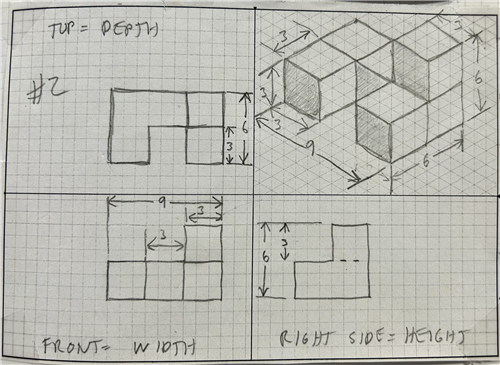 TOP = DEPTH
#2
6
3
3
3
3
3
9
6
6
9
3
3
6
3
FRONT= WIDTH
RIGHT SIDE=HEIGHT